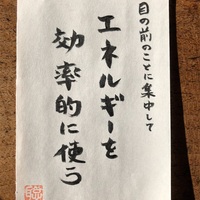 目の前のことに集中して
エネルギーを
効率的に使う